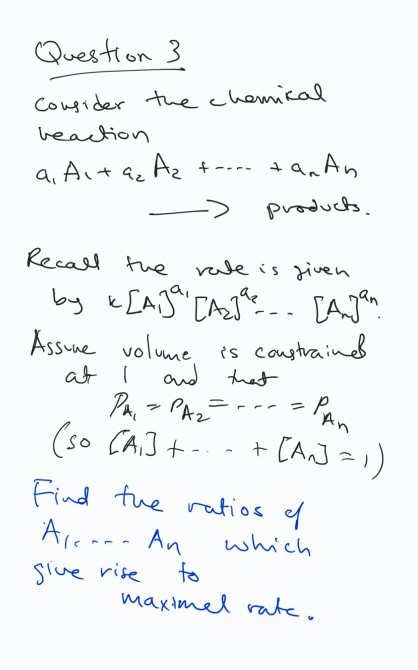 Question 3
Consider the chemical
reaction
a₁A₁ + a₂A₂ + ---- + aₙAₙ
⟶ products.
Recall the rate is given
by k[A₁]^a₁ [A₂]^a₂ --- [Aₙ]^aₙ.
Assume volume is constrained
at 1 and that
P_A₁ = P_A₂ = ---- = P_Aₙ
(so [A₁] + ---- + [Aₙ] = 1)
Find the ratios of
A₁, ---- Aₙ which
give rise to
maximal rate.